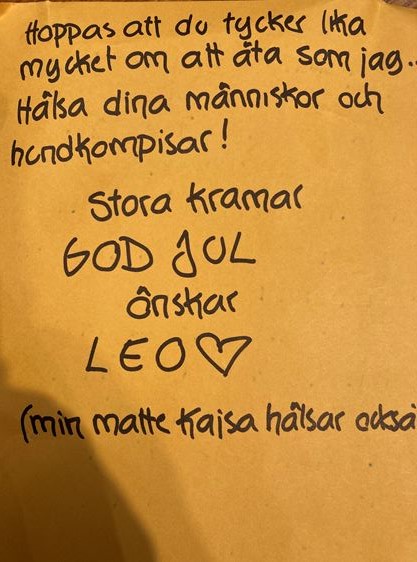 Hoppas att du tycker lika
mycket om att äta som jag..
Hälsa dina människor och
hundkompisar!
Stora kramar
GOD JUL
önskar
LEO♡
(min matte Kajsa hälsar också